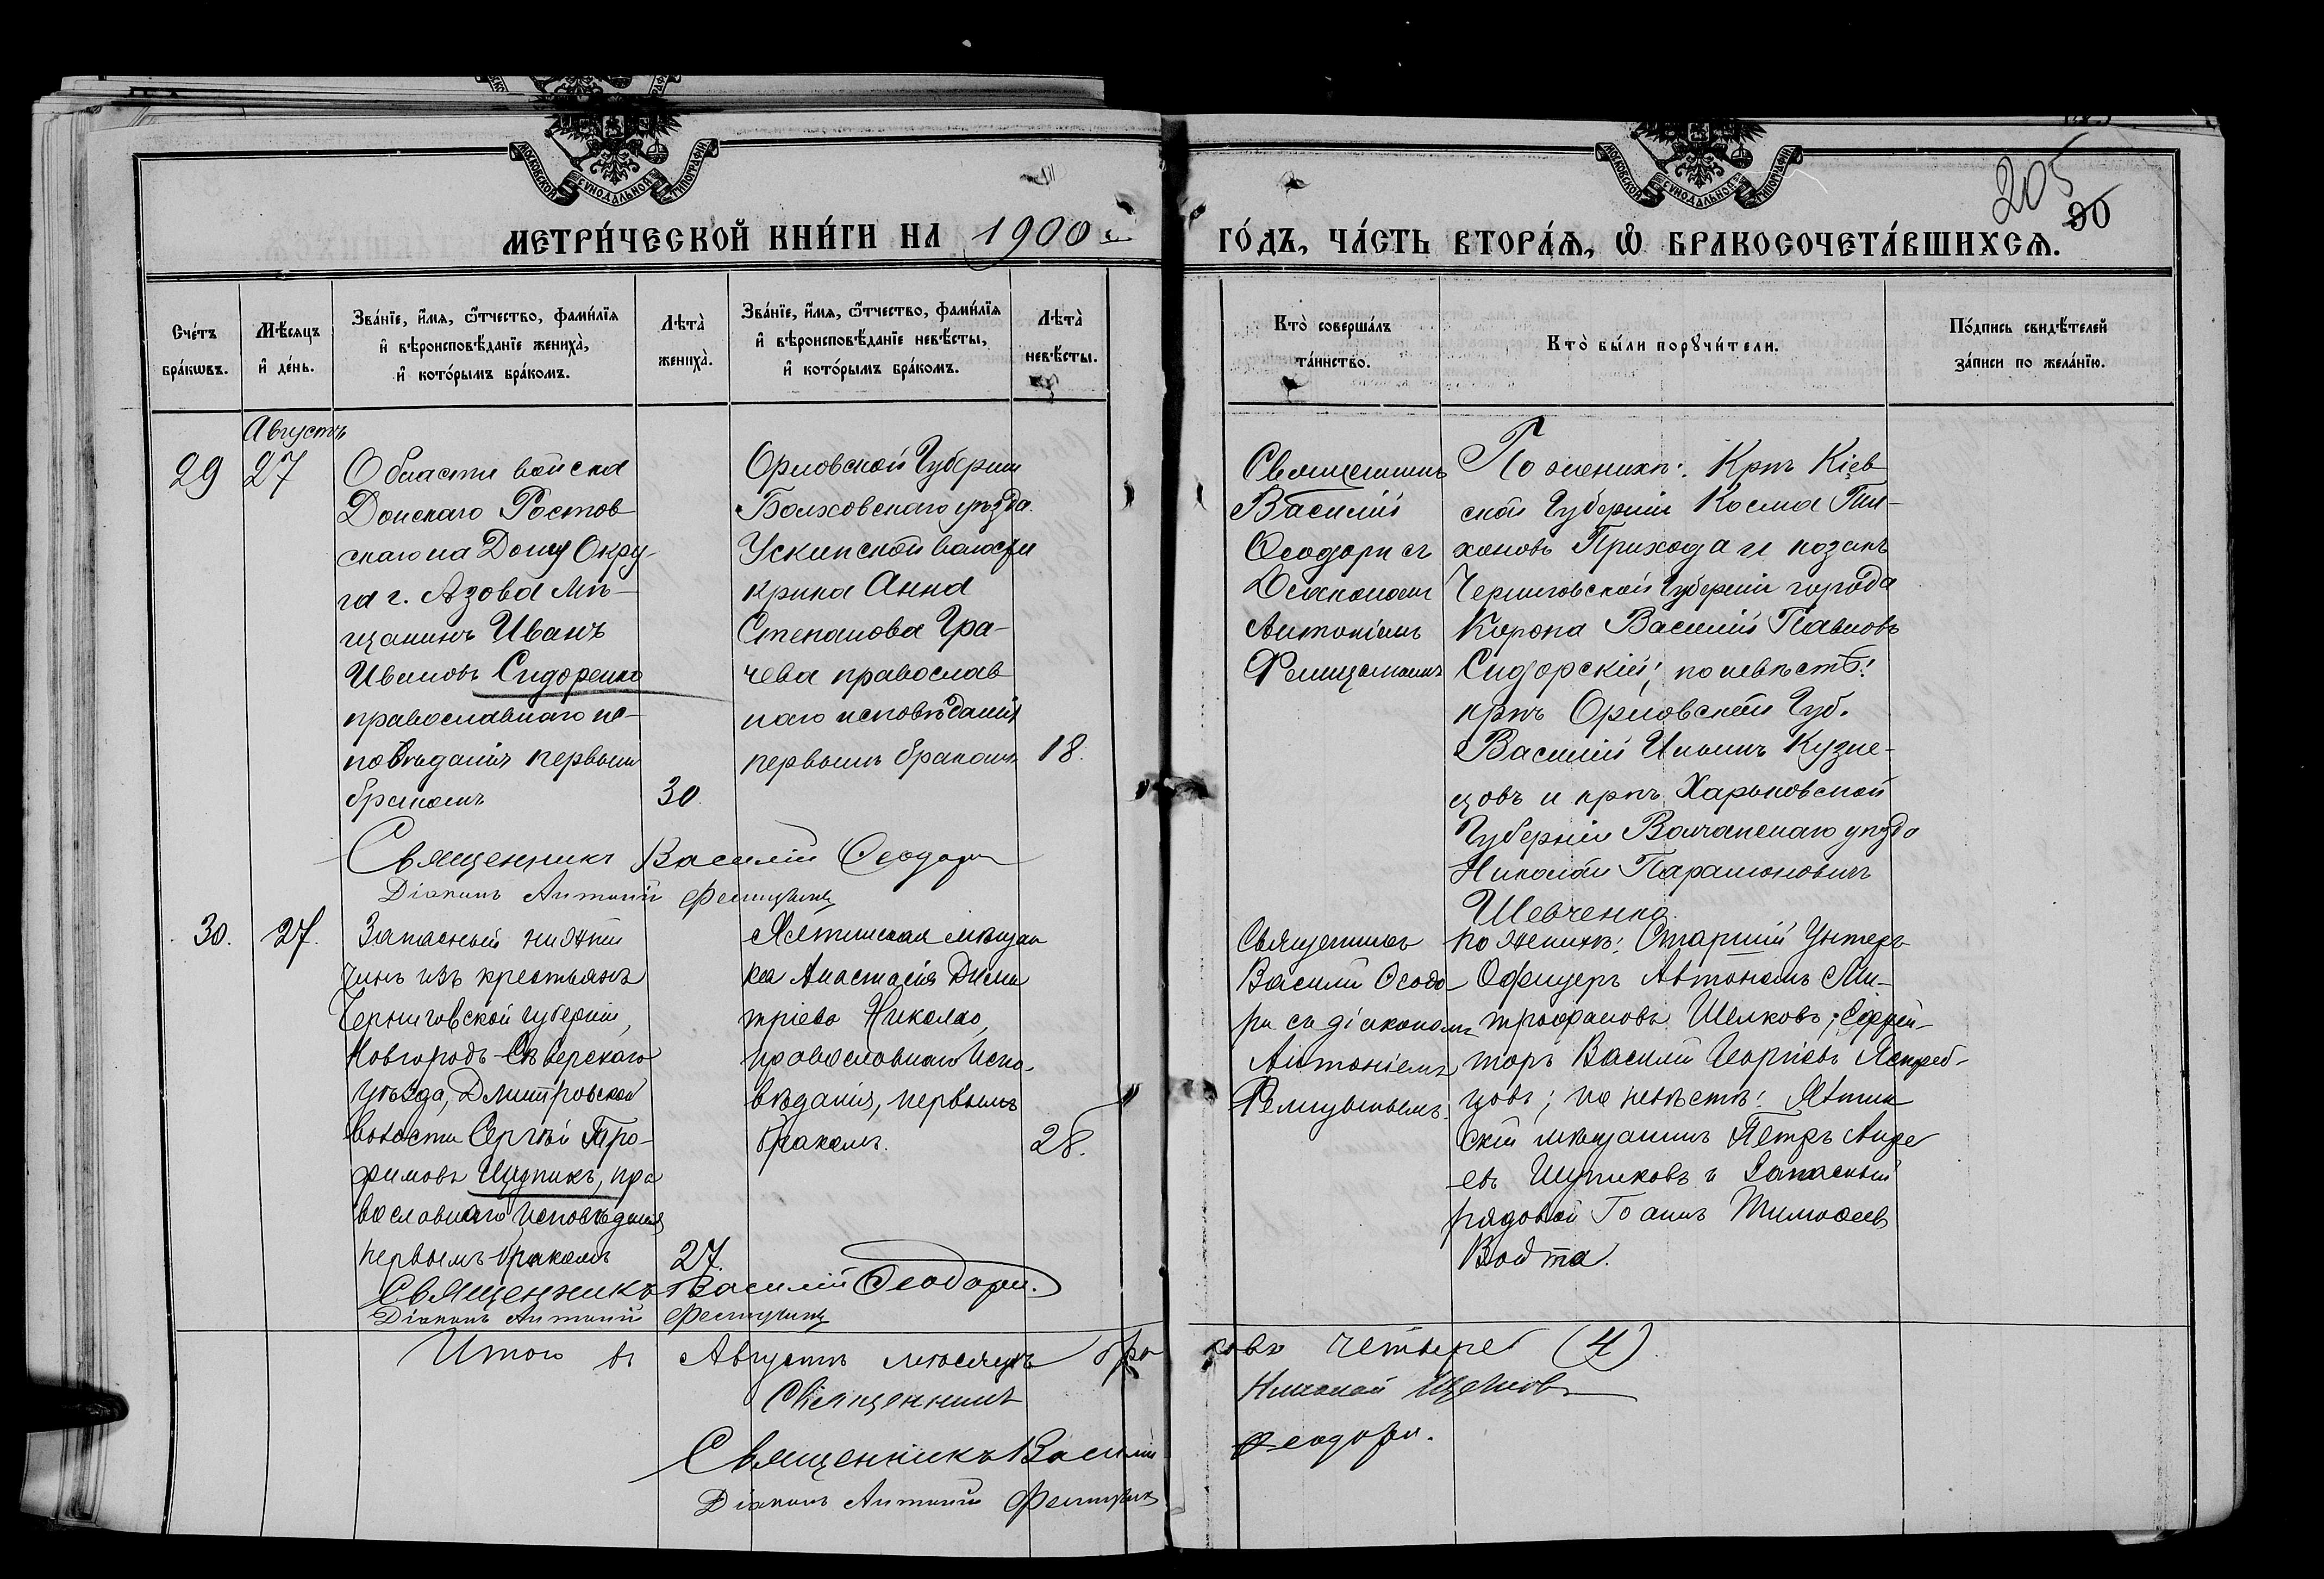 МОСКОВСКОЙ СѴНОДАЛЬНОЙ ТИПОГРАФІИ
МОСКОВСКОЙ СѴНОДАЛЬНОЙ ТИПОГРАФІИ
205
90
МЕТРИ́ЧЕСКОЙ КНИ́ГИ НА 1900
ГО́ДЪ, ЧА́СТЬ ВТОРА́Я, Ѡ҆ БРАКОСОЧЕТА́ВШИХСЯ.
Сче́тъ
бра́кѡвъ.
Мѣ́сяцъ
и҆ де́нь.
Зва́нїе, и҆́мя, ѻ҆́тчество, фами́лїя
и҆ вѣроисповѣ́данїе жениха̀,
и҆ кото́рымъ бра́комъ.
Лѣта̀
жениха̀.
Зва́нїе, и҆́мя, ѻ҆́тчество, фами́лїя
и҆ вѣроисповѣ́данїе невѣ́сты,
и҆ кото́рымъ бра́комъ.
Лѣта̀
невѣ́сты.
Кто̀ соверша́лъ
та́инство.
Кто̀ бы́ли порꙋчи́тели.
По́дпись свидѣ́телей
за́писи по жела́нїю.
Августъ
29
27
Области войска
Донскаго Ростов
скаго на Дону Окру-
га г. Азова Мѣ-
щанинъ Иванъ
Ивановъ Сидоренко
православнаго ис-
повѣданія первымъ
бракомъ
30.
Орловской Губерніи
Болховскаго уѣзда
Ускинской волости
крпка Анна
Степанова Гра-
чева православ
наго исповѣданія
первымъ бракомъ
18.
Священникъ
Василій
Ѳеодори съ
Діакономъ
Антоніемъ
По женихѣ: Крпъ Кіев
ской Губерніи Косма Ти-
хоновъ Прихода и козакъ
Черниговской Губерніи города
Коропа Василій Павловъ
Сидорскій; по невѣстѣ:
крпъ Орловской Губ.
Василій Ильинъ Кузне-
цовъ и крпъ Харьковской
Губерніи Волчанскаго уѣзда
Николай Парамоновичъ
Шевченко.
Священникъ Василій Ѳеодори
Діаконъ Антоній
30.
27.
Запасный нижній
чинъ изъ крестьянъ
Черниговской губерніи,
Новгородъ-Сѣверскаго
уѣзда, Дмитровской
волости Сергѣй Тро-
фимовъ Щупикъ, пра
вославнаго исповѣданія
первымъ бракомъ
27.
Ялтинская мѣщан
ка Анастасія Дими
тріева Николао,
православнаго испо-
вѣданія, первымъ
бракомъ.
28.
Священникъ
Василій Ѳеодо
ри съ діакономъ
Антоніемъ
по женихѣ: Старшій Унтеръ
Офицеръ Автономъ Ми-
трофановъ Шелковъ; Ефрей-
торъ Василій Георгіевъ Ястреб-
цовъ; по невѣстѣ: Ялтин
скій мѣщанинъ Петръ Андре
евъ Шупиковъ и Запасный
рядовой Іоаннъ Тимоѳеев
Войта.
Священникъ Василій Ѳеодори.
Діаконъ Антоній
Итого въ Августѣ мѣсяцѣ бра ковъ четыре (4).
Священникъ Николай Щегловъ
Священникъ Василій Ѳеодори.
Діаконъ Антоній